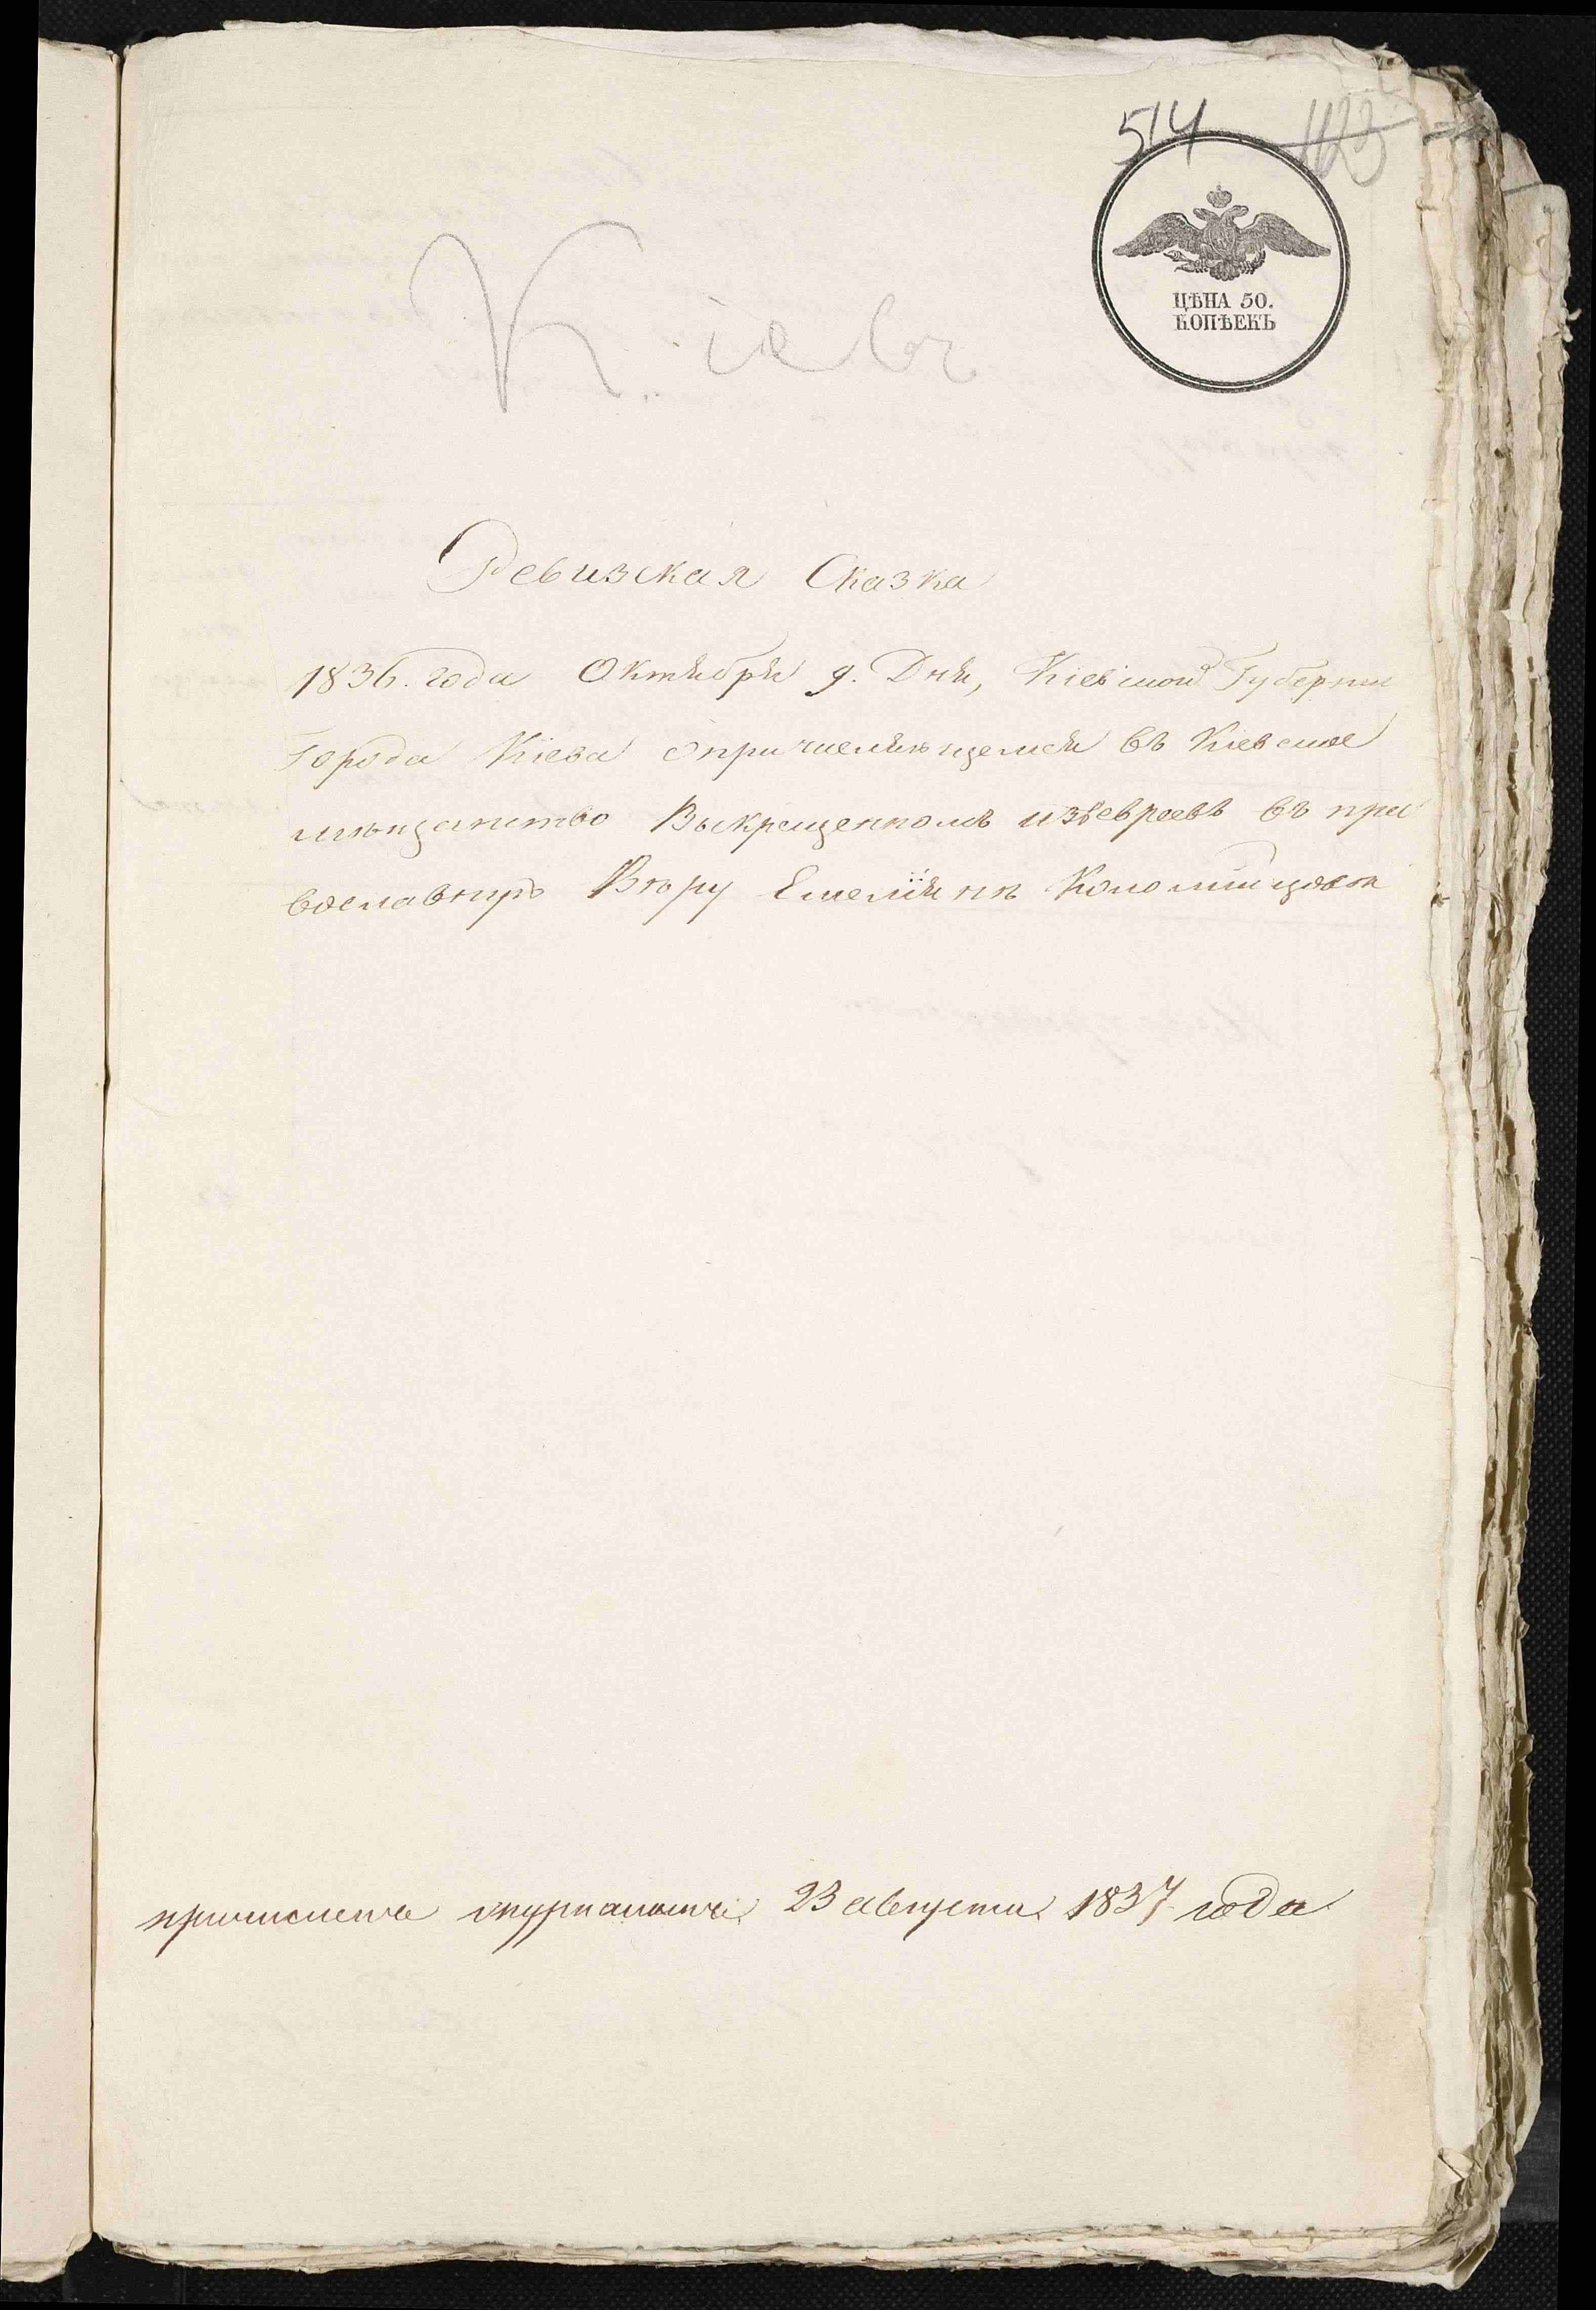 514 1123
ЦѢНА 50.
КОПѢЕКЪ
Кіевъ
Ревизская Сказка
1836. года Октября 9. Дня, Кіевской Губерніи
Города Кіева о причисляющемся въ Кіевское
мѣщанство Выкрещенномъ изъ евреевъ въ пра
вославную Вѣру Емеліянѣ
причислена журналомъ 23 августа 1837 года